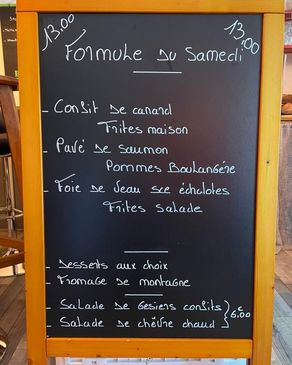 13.00 13.00
Formule Du Samedi
- Confit De canard
Frites maison
- Pavé De Saumon
Pommes Boulangère
- Foie De Veau sce échalotes
Frites Salade
- Desserts aux choix
- Fromage De montagne
- Salade De Gesiers confits
- Salade De chèvre chaud } 6.00 €